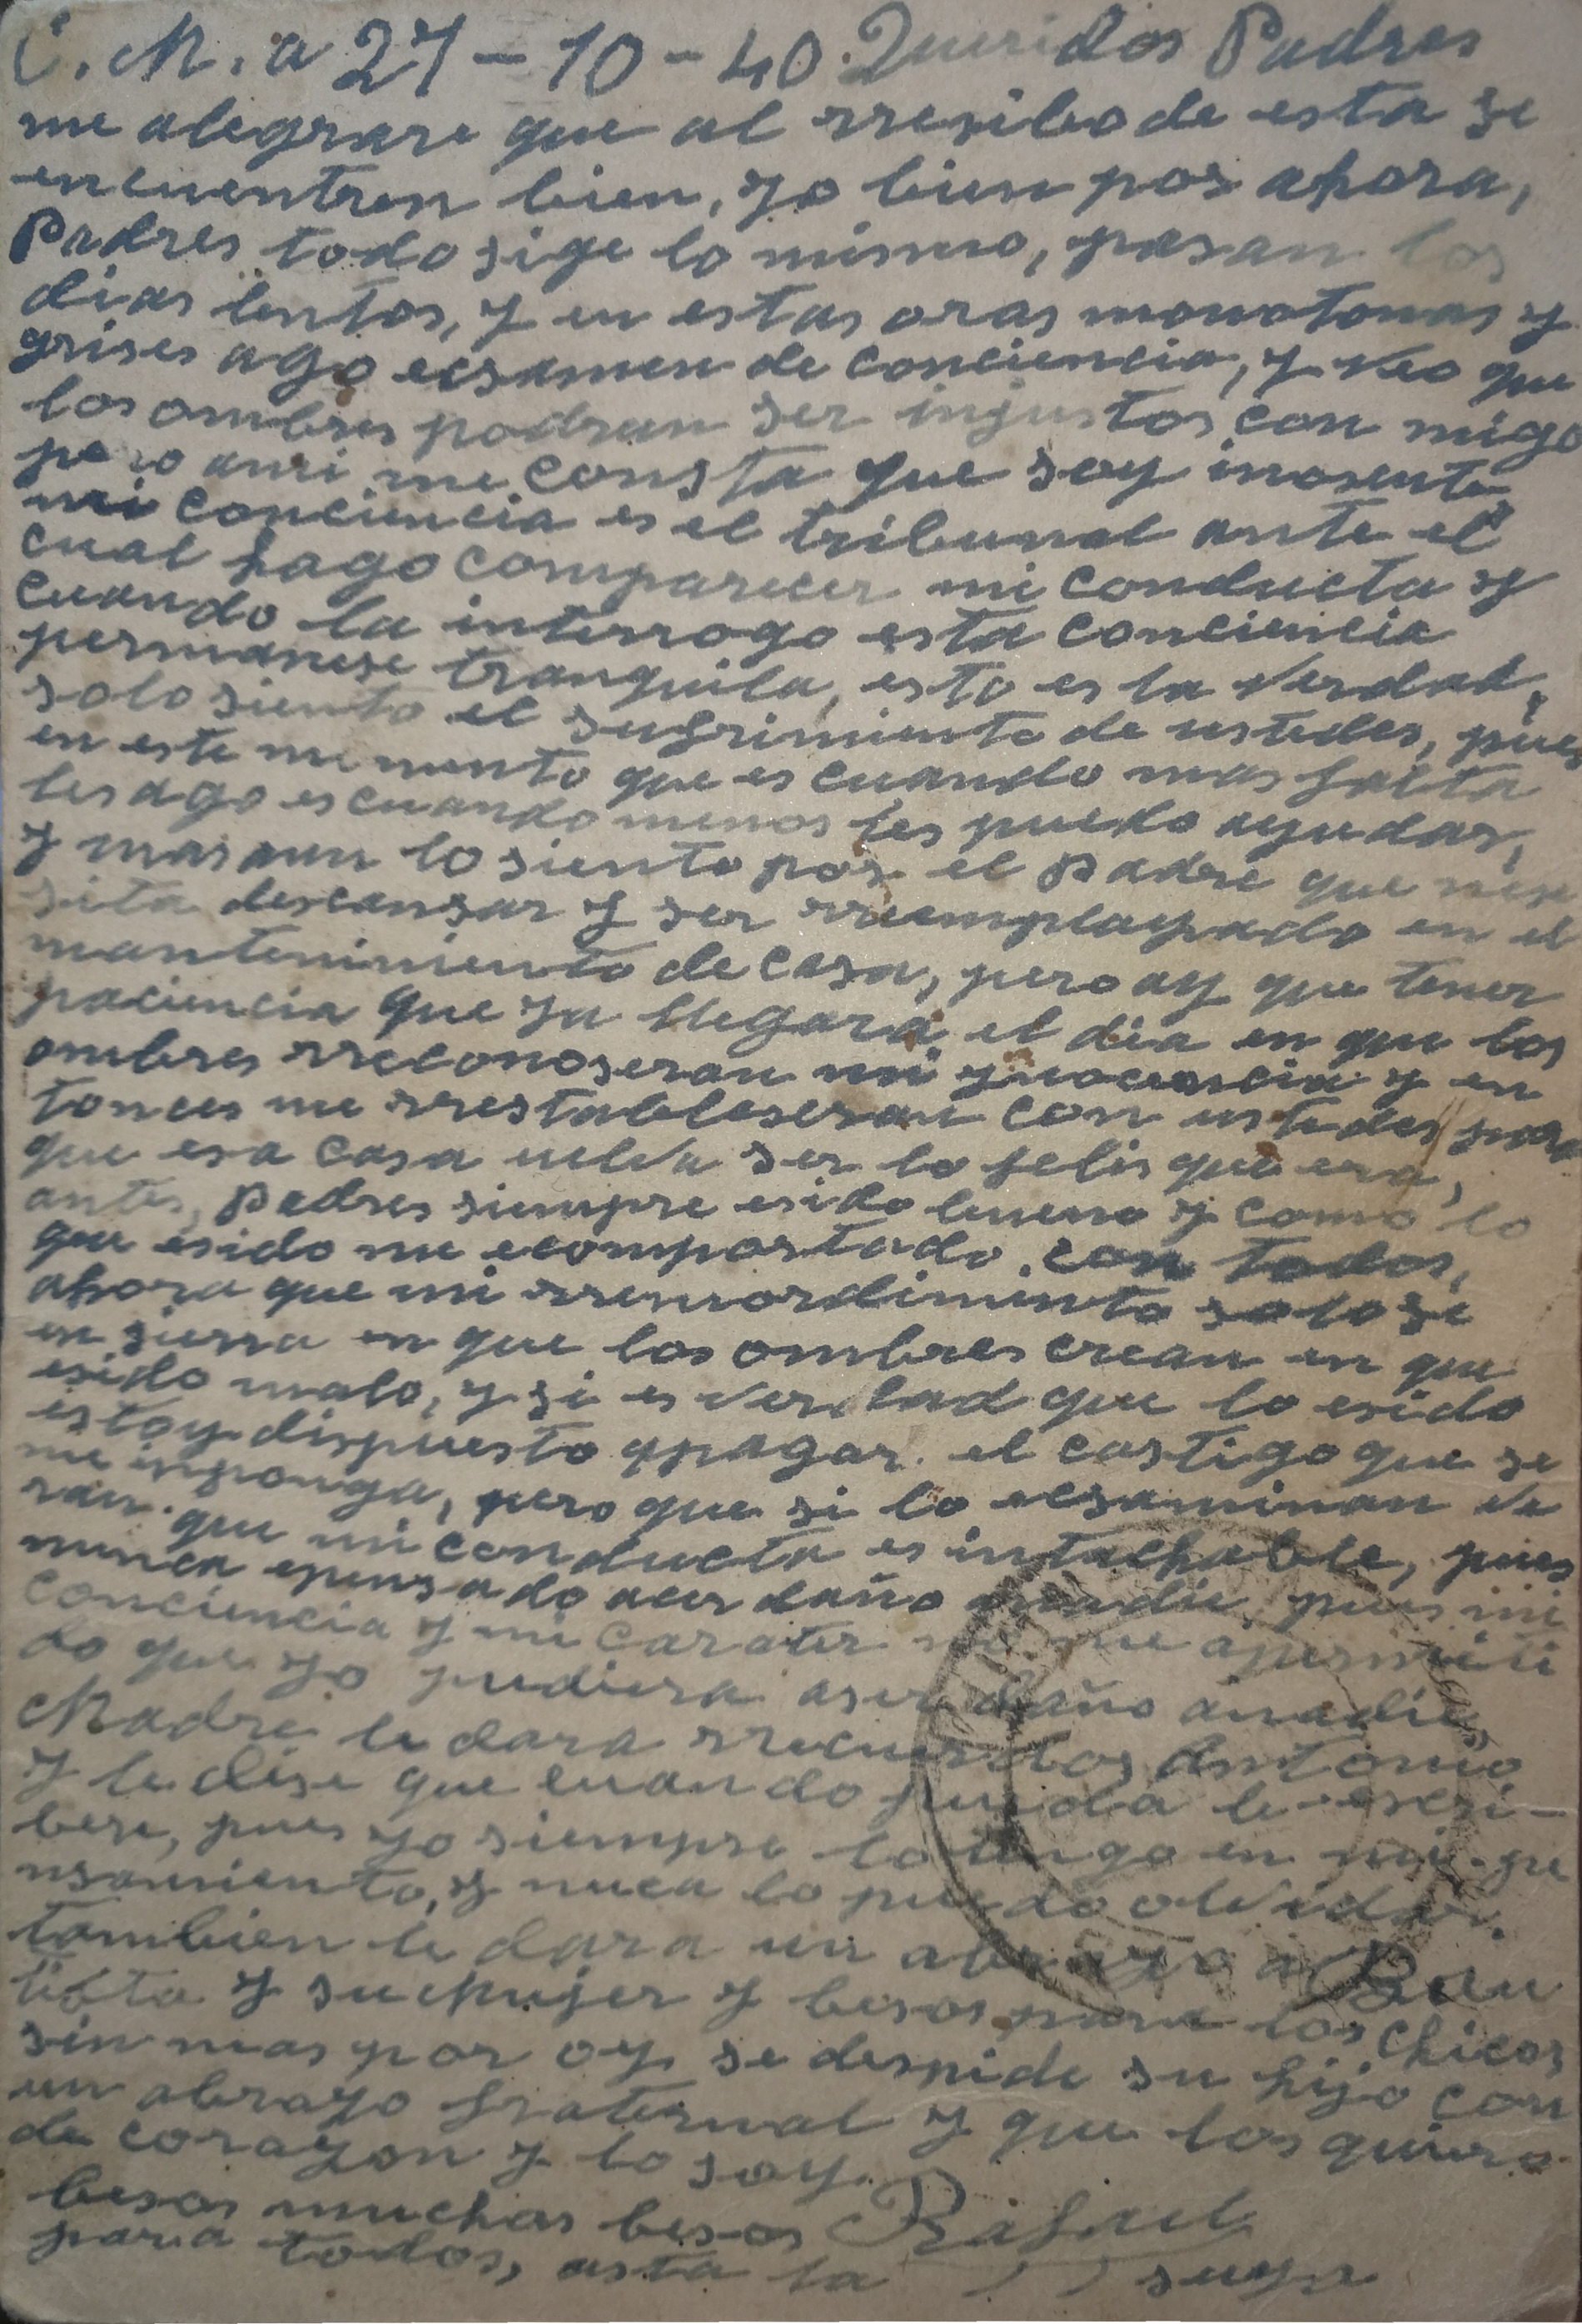 C. M. a 27-10-40. Queridos Padres
me alegrare que al rresibo de esta se
encuentren bien, yo bien por ahora,
Padres todo sige lo mismo, pasan los
dias lentos, y en estas oras monotonas y
grises ago ecsamen de conciencia, y veo que
los ombres podran ser injustos con migo
pero ami me consta que soy inosente
mi conciencia es el tribunal ante el
cual hago comparecer mi conducta y
cuando la interrogo esta conciencia
permanese tranquila, esto es la verdad,
solo siento el sufrimiento de ustedes, pues
en este momento que es cuando mas falta
les ago es cuando menos les puedo ayudar,
y mas aun lo siento por el Padre que nese
sita descansar y ser rremplazado en el
mantenimiento de casa, pero ay que tener
paciencia que ya llegara el dia en que los
ombres rreconoseran mi ynocencia y en
tonces me rrestableseran con ustedes para
que esa casa uelva ser lo felis que era,
antes, Padres siempre esido bueno y como lo
que esido me ecomportado con todos,
ahora que mi rremordimiento solo se
en sierra en que los ombres crean en que
esido malo, y si es verdad que lo esido
estoy dispuesto apagar el castigo que se
me imponga, pero que si lo ecsaminan ve
ran que mi conducta es intachable, pues
nunca epensado acer daño anadie, pues mi
conciencia y mi carater no me apermiti
do que yo pudiera aser daño anadie,
Madre le dara rrecuerdos Antonio
y le dise que cuando pueda le escri-
bere, pues yo siempre lo tengo en mi pe
nsamiento, y nuca lo puedo olvidar,
tambien le dara un abrazo a Bau
tista y su mujer y besos para los chicos
sin mas por oy se despide su hijo con
un abrazo fraternal y que los quiere
de corazon y lo soy.
besos muchos besos Rafael
para todos, asta la suya